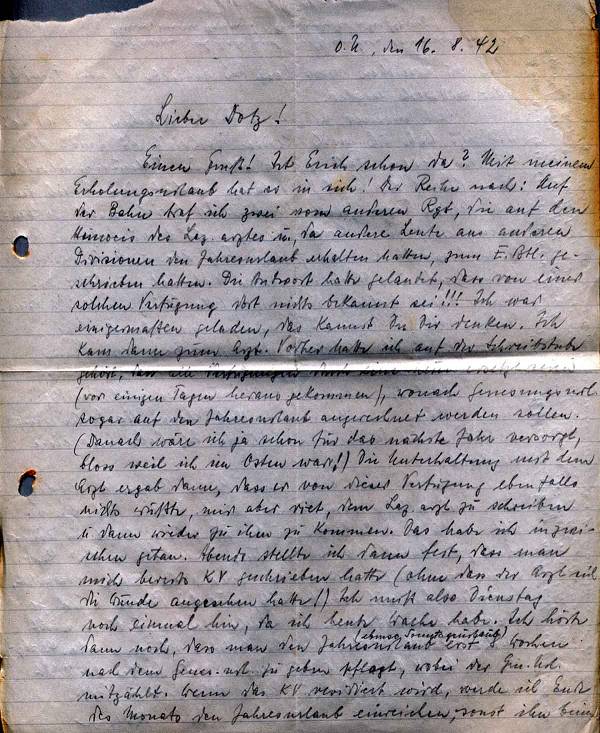 O.U., den 16. 8. 42
Lieber Dotz!
Einen Gruß! Ist Erich schon da? Mit meinem
Erholungsurlaub hat es in sich! Der Reihe nach: Auf
der Bahn traf ich zwei vom anderen Rgt, die auf den
Hinweis des Laz. arztes in, da andere Leute aus anderen
Divisionen den Jahresurlaub erhalten hatten, zum E. Btl. ge-
schrieben hatten. Die Antwort hatte gelautet, dass von einer
solchen Verfügung dort nichts bekannt sei!!! Ich war
einigermaßen geladen, das kannst Du Dir denken. Ich
kam dann zum Arzt. Vorher hatte ich auf der Schreibstube
gehört, dass alle Verfügungen durch eine neue ersetzt seien
(vor einigen Tagen herausgekommen), wonach Genesungsurl.
sogar auf den Jahresurlaub angerechnet werden sollen.
(Danach wäre ich ja schon für das nächste Jahr versorgt,
bloss weil ich im Osten war!) Die Unterhaltung mit dem
Arzt ergab dann, dass er von dieser Verfügung ebenfalls
nichts wußte, mir aber riet, dem Laz. arzt zu schreiben
u dann wieder zu ihm zu kommen. Das habe ich inzwi-
schen getan. Abends stellte ich dann fest, dass man
mich bereits KV geschrieben hatte (ohne dass der Arzt sich
die Wunde angesehen hatte!) Ich muß also Dienstag
noch einmal hin, da ich heute Wache habe. Ich hörte
dann noch, dass man den Jahresurlaub (ebenso ) erst 8 Wochen
nach dem Genes. url. zu geben pflegt, wobei der
mitzählt. Wenn das KV revidiert wird, werde ich Ende
des Monats den Jahresurlaub einreichen, sonst ihn